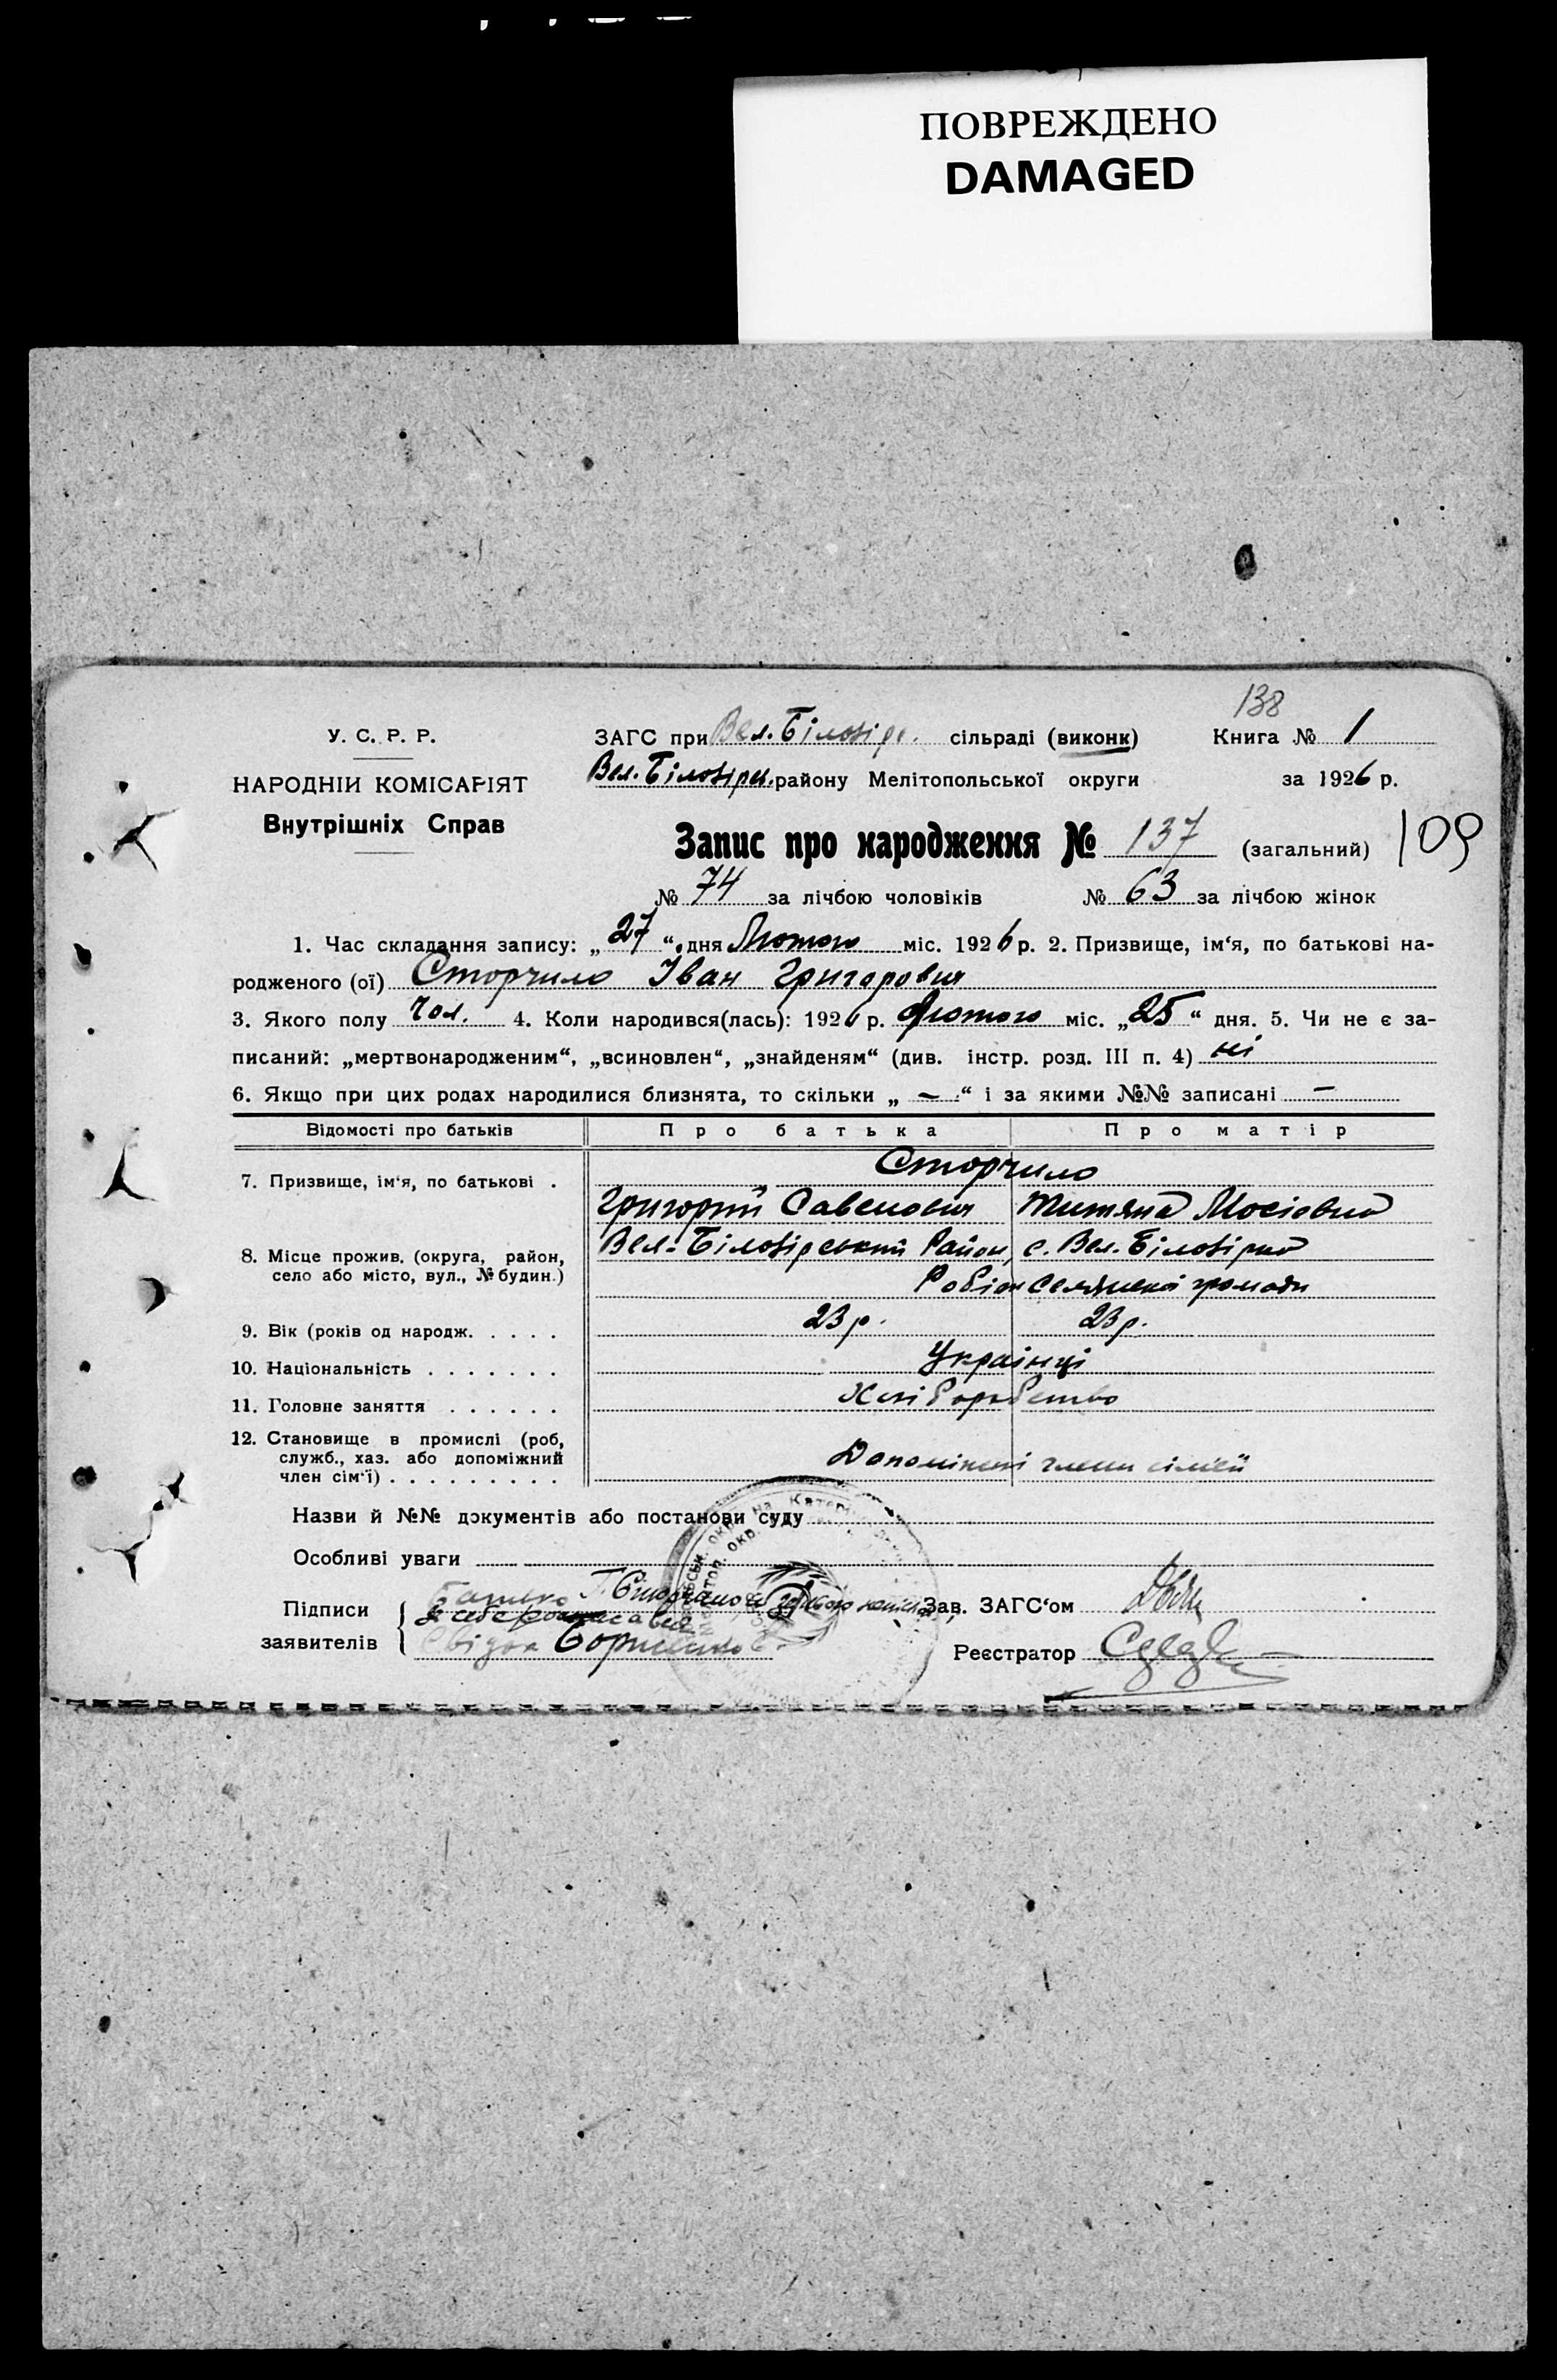 ПОВРЕЖДЕНО
DAMAGED
138
У. С. Р. Р.
ЗАГС при Вел. Білозірс. сільраді (виконк) Книга № 1
НАРОДНІЙ КОМІСАРІЯТ
Вел. Білозірськ. району Мелітопольської округи за 1926 р.
Внутрішніх Справ
Запис про народження № 137 (загальний) 109
№ 74 за лічбою чоловіків № 63 за лічбою жінок
1. Час складання запису: „27“ дня Лютого міс. 1926 р. 2. Призвище, ім‘я, по батькові на-
родженого (ої) Сторчило Іван Григорович
3. Якого полу чол. 4. Коли народився(лась): 1926 р. Лютого міс. „25“ дня. 5. Чи не є за-
писаний: „мертвонародженим“, „всиновлен“, „знайденям“ (див. інстр. розд. III п. 4) ні
6. Якщо при цих родах народилися близнята, то скільки „ — “ і за якими №№ записані —
Відомості про батьків Про батька Про матір
7. Призвище, ім‘я, по батькові . Сторчило
Григорій Савелович Титяна Мосієвна
8. Місце прожив. (округа, район, село або місто, вул., № будин.) Вел-Білозірський Район, с. Вел. Білозірка
Робіт Селянської громади
9. Вік (років од народж. . . . . 23 р. 23 р.
10. Національність . . . . . . . Українці
11. Головне заняття . . . . . . Хліборобство
12. Становище в промислі (роб,
служб., хаз. або допоміжний
член сім‘ї) . . . . . . . . . Допоміжні члени сімїї
Назви й №№ документів або постанови суду
Особливі уваги
Підписи заявителів
Батько Г.
Свідок Борисенко
Зав. ЗАГС‘ом
Реєстратор